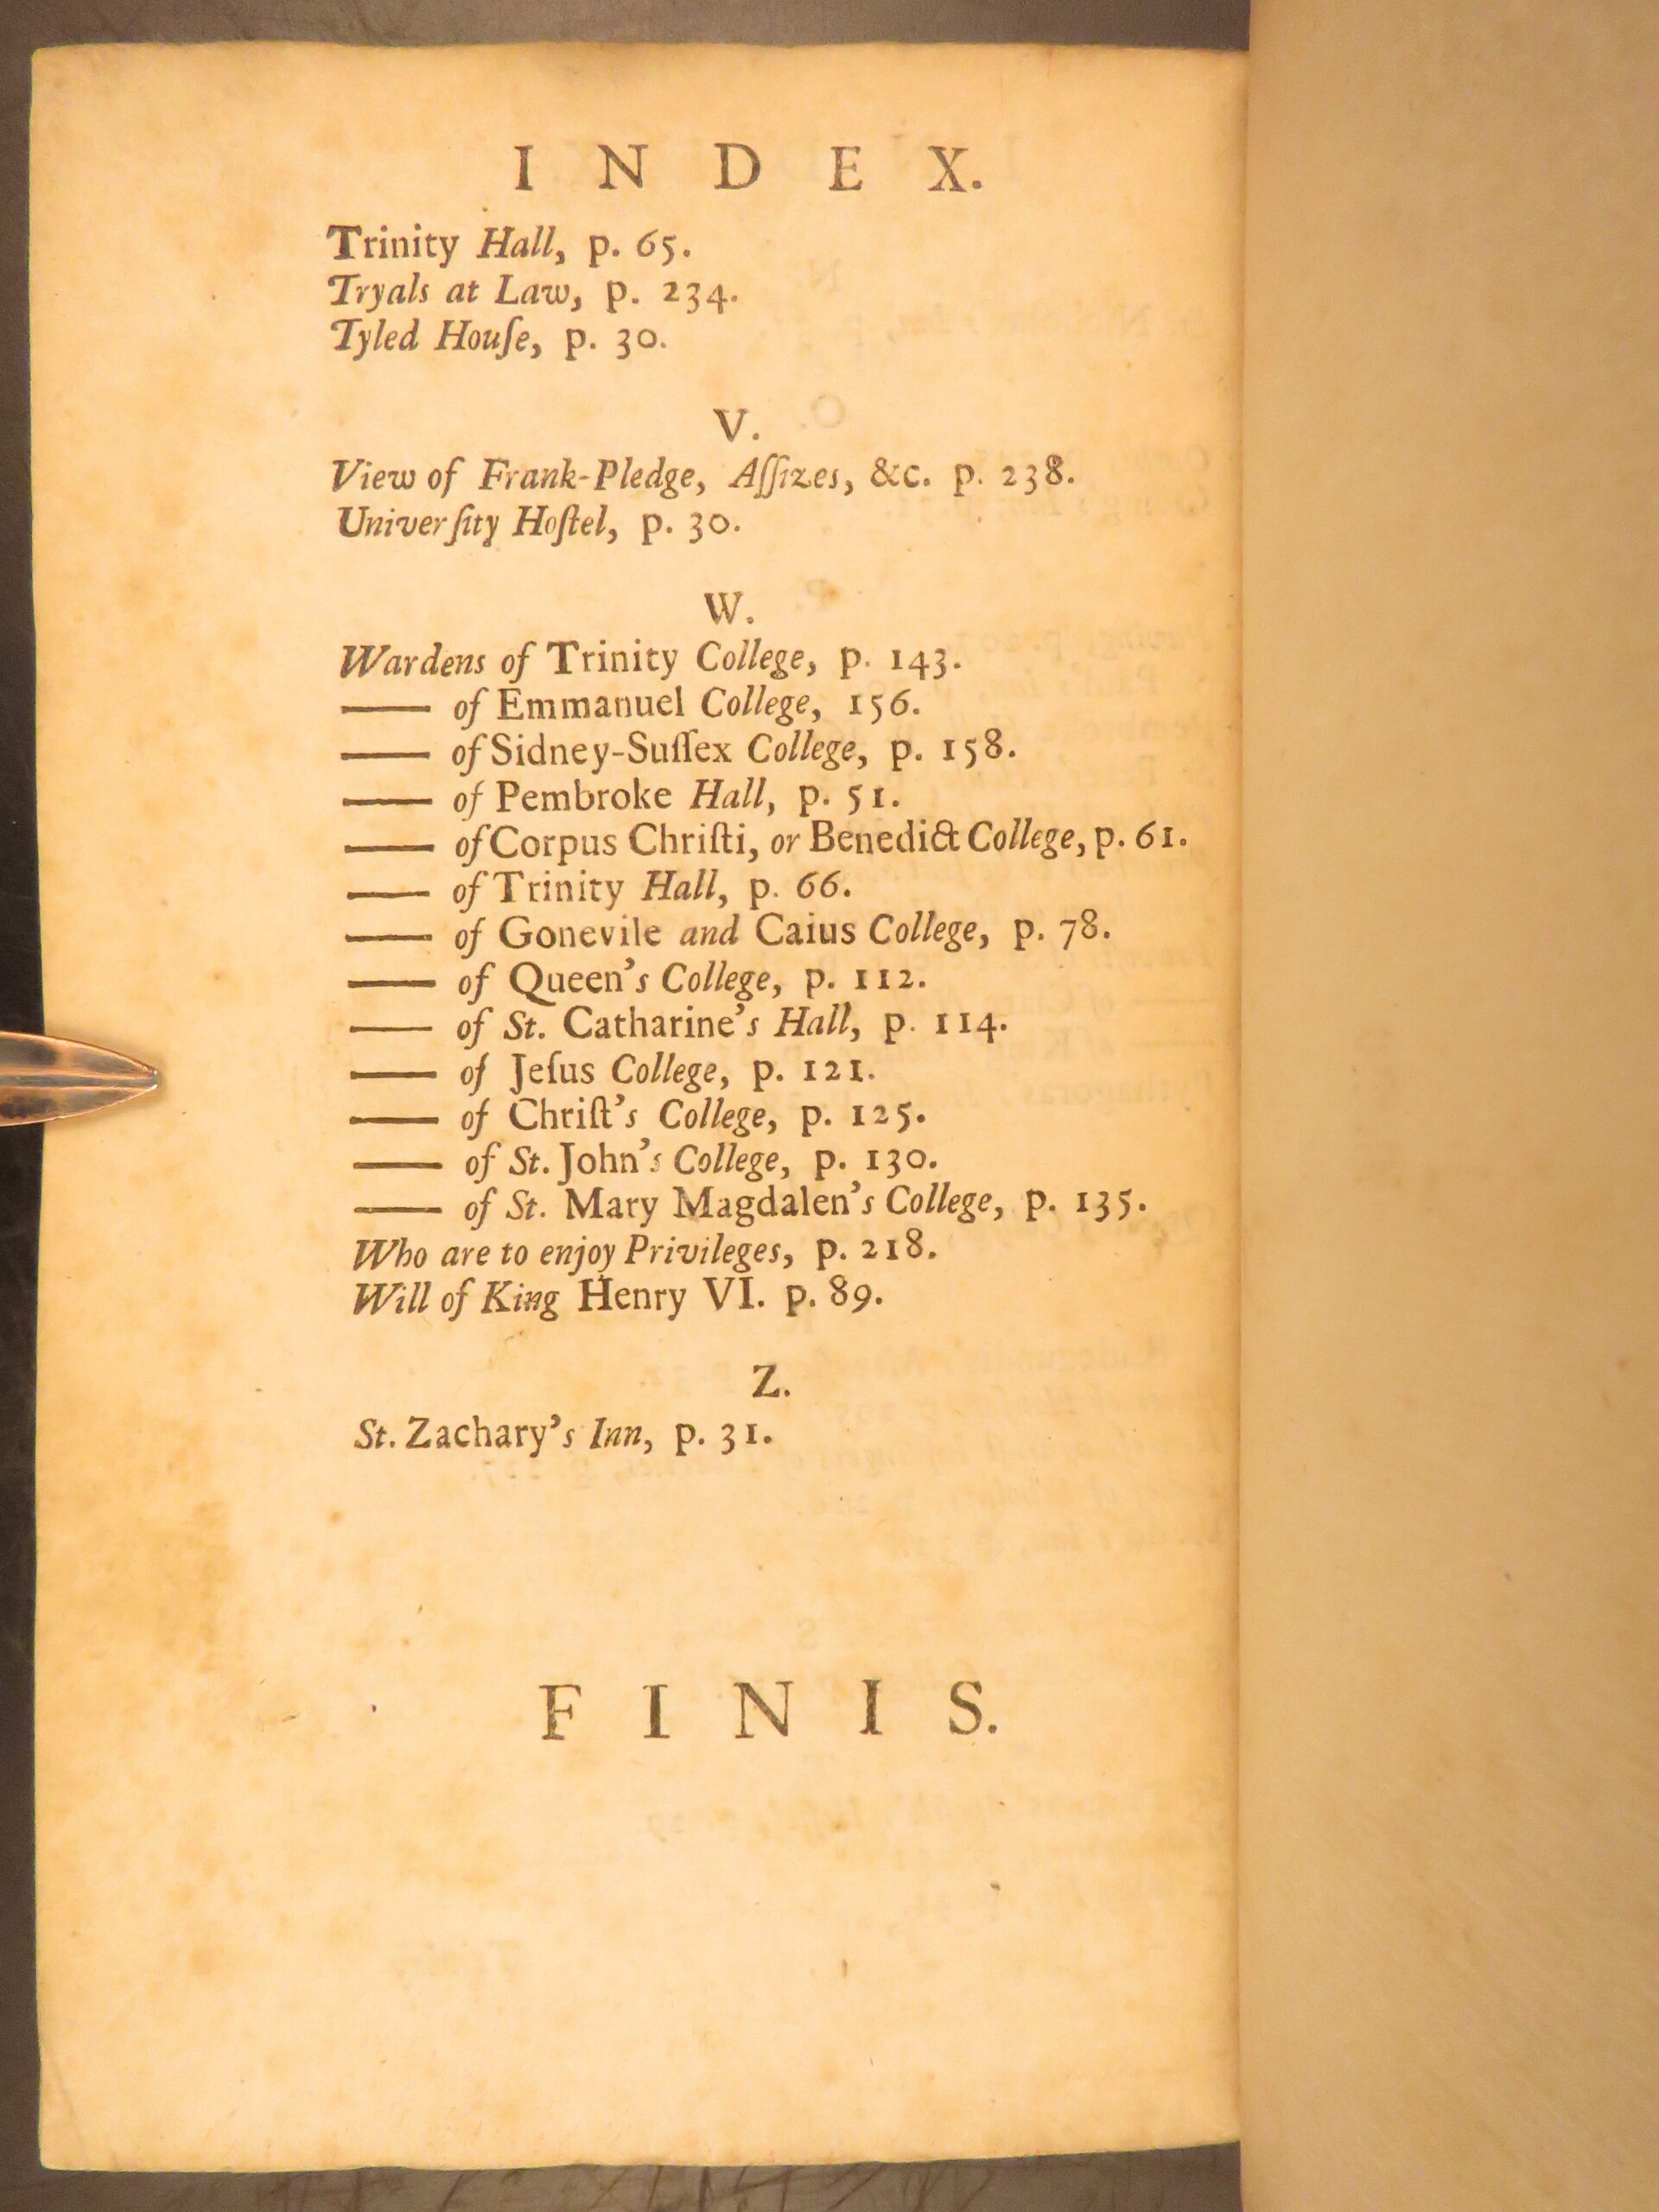 I N D E X.
Trinity Hall, p. 65.
Tryals at Law, p. 234.
Tyled Houſe, p. 30.
V.
View of Frank-Pledge, Aſſizes, &c. p. 238.
Univerſity Hoſtel, p. 30.
W.
Wardens of Trinity College, p. 143.
—— of Emmanuel College, 156.
—— of Sidney-Suſſex College, p. 158.
—— of Pembroke Hall, p. 51.
—— of Corpus Chriſti, or Benedict College, p. 61.
—— of Trinity Hall, p. 66.
—— of Gonevile and Caius College, p. 78.
—— of Queen's College, p. 112.
—— of St. Catharine's Hall, p. 114.
—— of Jeſus College, p. 121.
—— of Chriſt's College, p. 125.
—— of St. John's College, p. 130.
—— of St. Mary Magdalen's College, p. 135.
Who are to enjoy Privileges, p. 218.
Will of King Henry VI. p. 89.
Z.
St. Zachary's Inn, p. 31.
F I N I S.